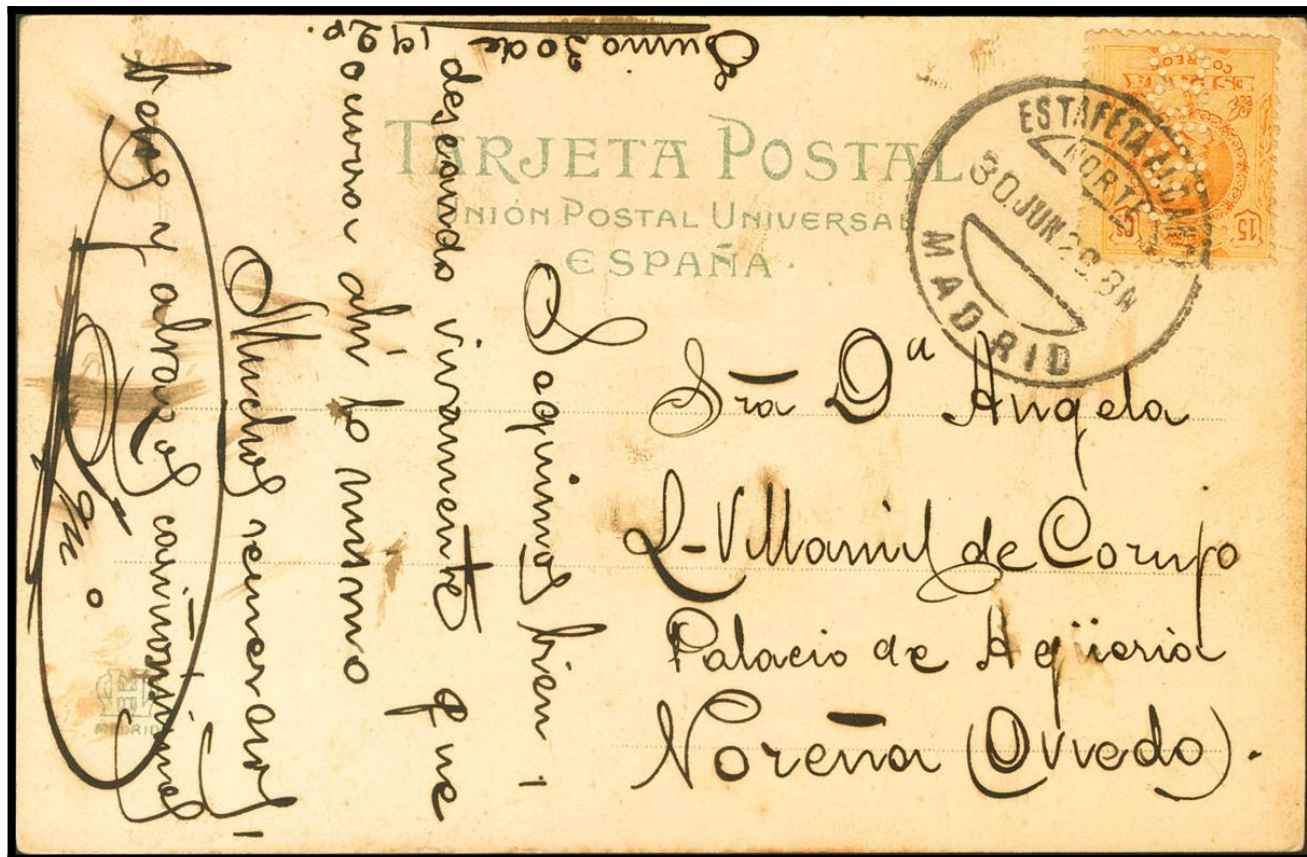 TARJETA POSTAL
UNIÓN POSTAL UNIVERSAL
·ESPAÑA·
CORREOS
15 Cs 15
ESTAFETA ALCANCE
NORTE
30.JUN.20.8N
MADRID
Sra Dª Angela
L-Villamil de Corujo
Palacio de Agüeria
Noreña (Oviedo).
Junio 30 de
1920.
Seguimos bien y
deseando vivamente que
ocurra ahí lo mismo
Muchos recuerdos,
besos y abrazos cariñosísimos
MADRID